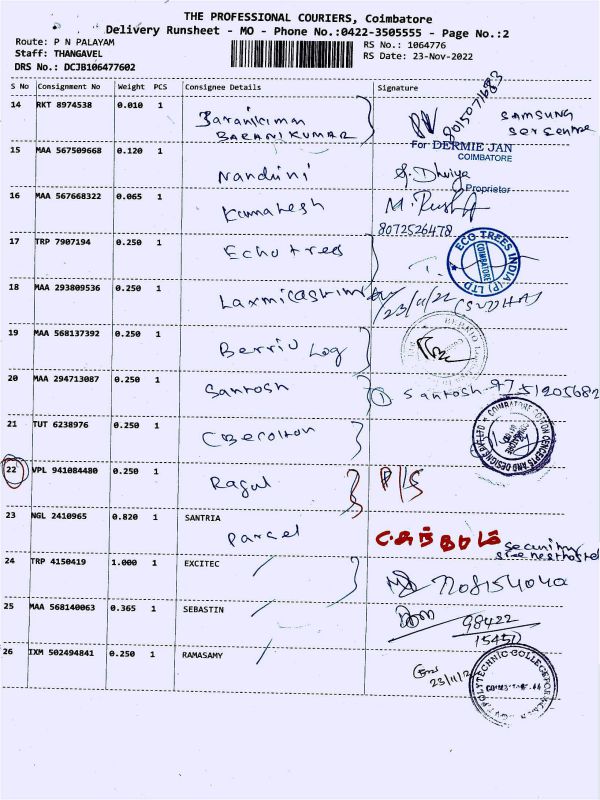 THE PROFESSIONAL COURIERS, Coimbatore
Delivery Runsheet - MO - Phone No.:0422-3505555 - Page No.:2
Route: P N PALAYAM
RS No.: 1064776
Staff: THANGAVEL
RS Date: 23-Nov-2022
DRS No.: DCJB106477602
S No Consignment No Weight PCS Consignee Details Signature
14 RKT 8974538 0.010 1 Baranikumar
BARANIKUMAR
8015071683
SAMSUNG
Ser Centre
For DERMIE JAN
COIMBATORE
15 MAA 567509668 0.120 1 Nandini
Proprietor
16 MAA 567668322 0.065 1 Kamalesh
8072526478
17 TRP 7907194 0.250 1 Echotrees
ECO-TREES INDIA (P) LTD
COIMBATORE
18 MAA 293809536 0.250 1
23/11/22 (SUDHA)
19 MAA 568137392 0.250 1 Berrio Log
20 MAA 294713087 0.250 1 Santosh
① Santosh-9751205682
21 TUT 6238976 0.250 1
COIMBATORE COTTON CONCEPTS AND DESIGNS (P) LTD
22 VPL 941084480 0.250 1 Ragul
P/S
23 NGL 2410965 0.820 1 SANTRIA
Parcel
Security
24 TRP 4150419 1.000 1 EXCITEC
7708154040
25 MAA 568140063 0.365 1 SEBASTIN
98422
15451
26 IXM 502494841 0.250 1 RAMASAMY
23/11/2
POLYTECHNIC COLLEGE